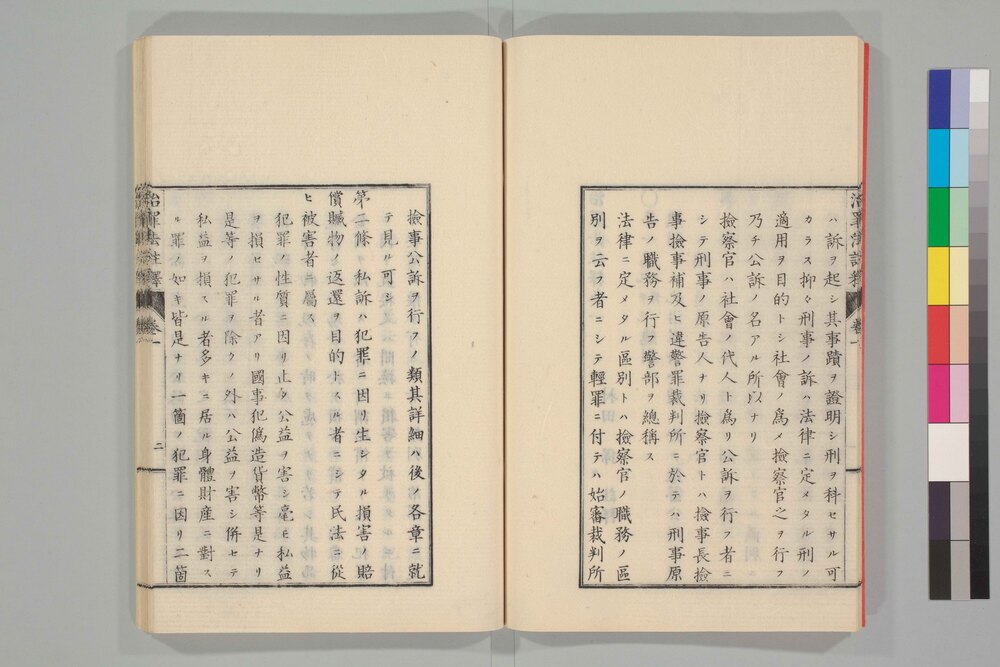 治罪法註釋 卷一
ハ訴ヲ起シ其事蹟ヲ證明シ刑ヲ科セサル可
カラス抑々刑事ノ訴ハ法律ニ定メタル刑ノ
適用ヲ目的トシ社會ノ爲メ檢察官之ヲ行フ
乃チ公訴ノ名アル所以ナリ
檢察官ハ社會ノ代人ト爲リ公訴ヲ行フ者ニ
シテ刑事ノ原告人ナリ檢察官トハ檢事長檢
事檢事補及ヒ違警罪裁判所ニ於テハ刑事原
告ノ職務ヲ行フ警部ヲ總稱ス
法律ニ定メタル區別トハ檢察官ノ職務ノ區
別ヲ云フ者ニシテ輕罪ニ付テハ始審裁判所
檢事公訴ヲ行フノ類其詳細ハ後ノ各章ニ就
テ見ル可シ
第二條 私訴ハ犯罪ニ因リ生シタル損害ノ賠
償贓物ノ返還ヲ目的トスル者ニシテ民法ニ從
ヒ被害者ニ屬ス
犯罪ノ性質ニ因リ止タ公益ヲ害シ毫モ私益
ヲ損セサル者アリ國事犯僞造貨幣等是ナリ
是等ノ犯罪ヲ除クノ外ハ公益ヲ害シ併セテ
私益ヲ損スル者多キニ居ル身體財産ニ對ス
ル罪ノ如キ皆是ナリ一箇ノ犯罪ニ因リ二箇
治罪法註釋 卷一 二